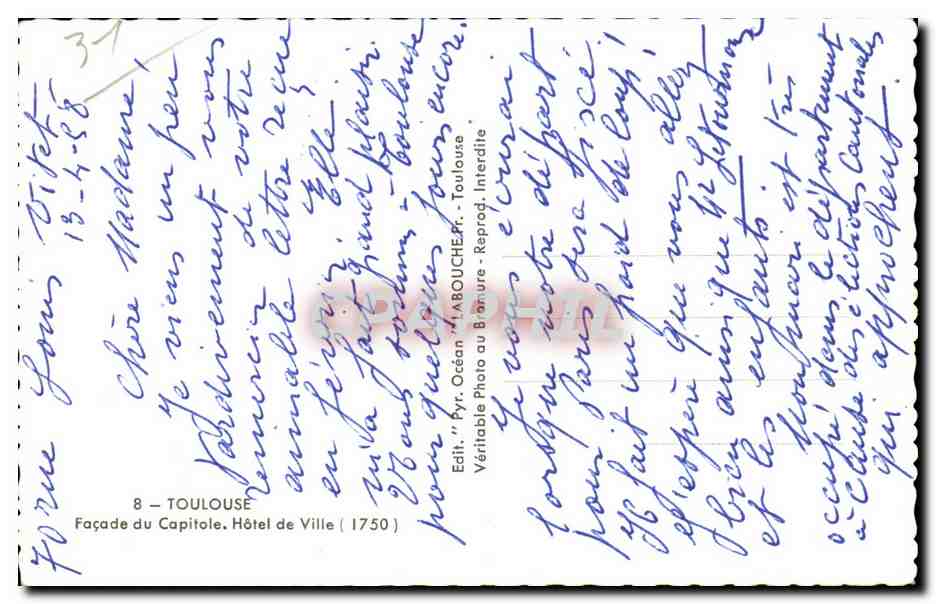 31
70 rue Louis Vitet
13-4-58
Chère Madame!
Je viens un peu
tardivement vous
remercier de votre
aimable lettre reçue
en février. Elle
m'a fait grand plaisir.
Nous sommes à Toulouse
pour quelques jours encore.
Je vous écrirai
lorsque notre départ
pour Paris sera fixé.
Il fait un froid de loup!
J'espère que vous allez
bien ainsi que Mr
et les enfants.
Mon mari est très
occupé dans le département
à cause des élections cantonales
qui approchent.
Edit. "Pyr. Océan" LABOUCHE Fr. - Toulouse
Véritable Photo au Bromure - Reprod. Interdite
8 — TOULOUSE
Façade du Capitole. Hôtel de Ville (1750)
CPAPHIL